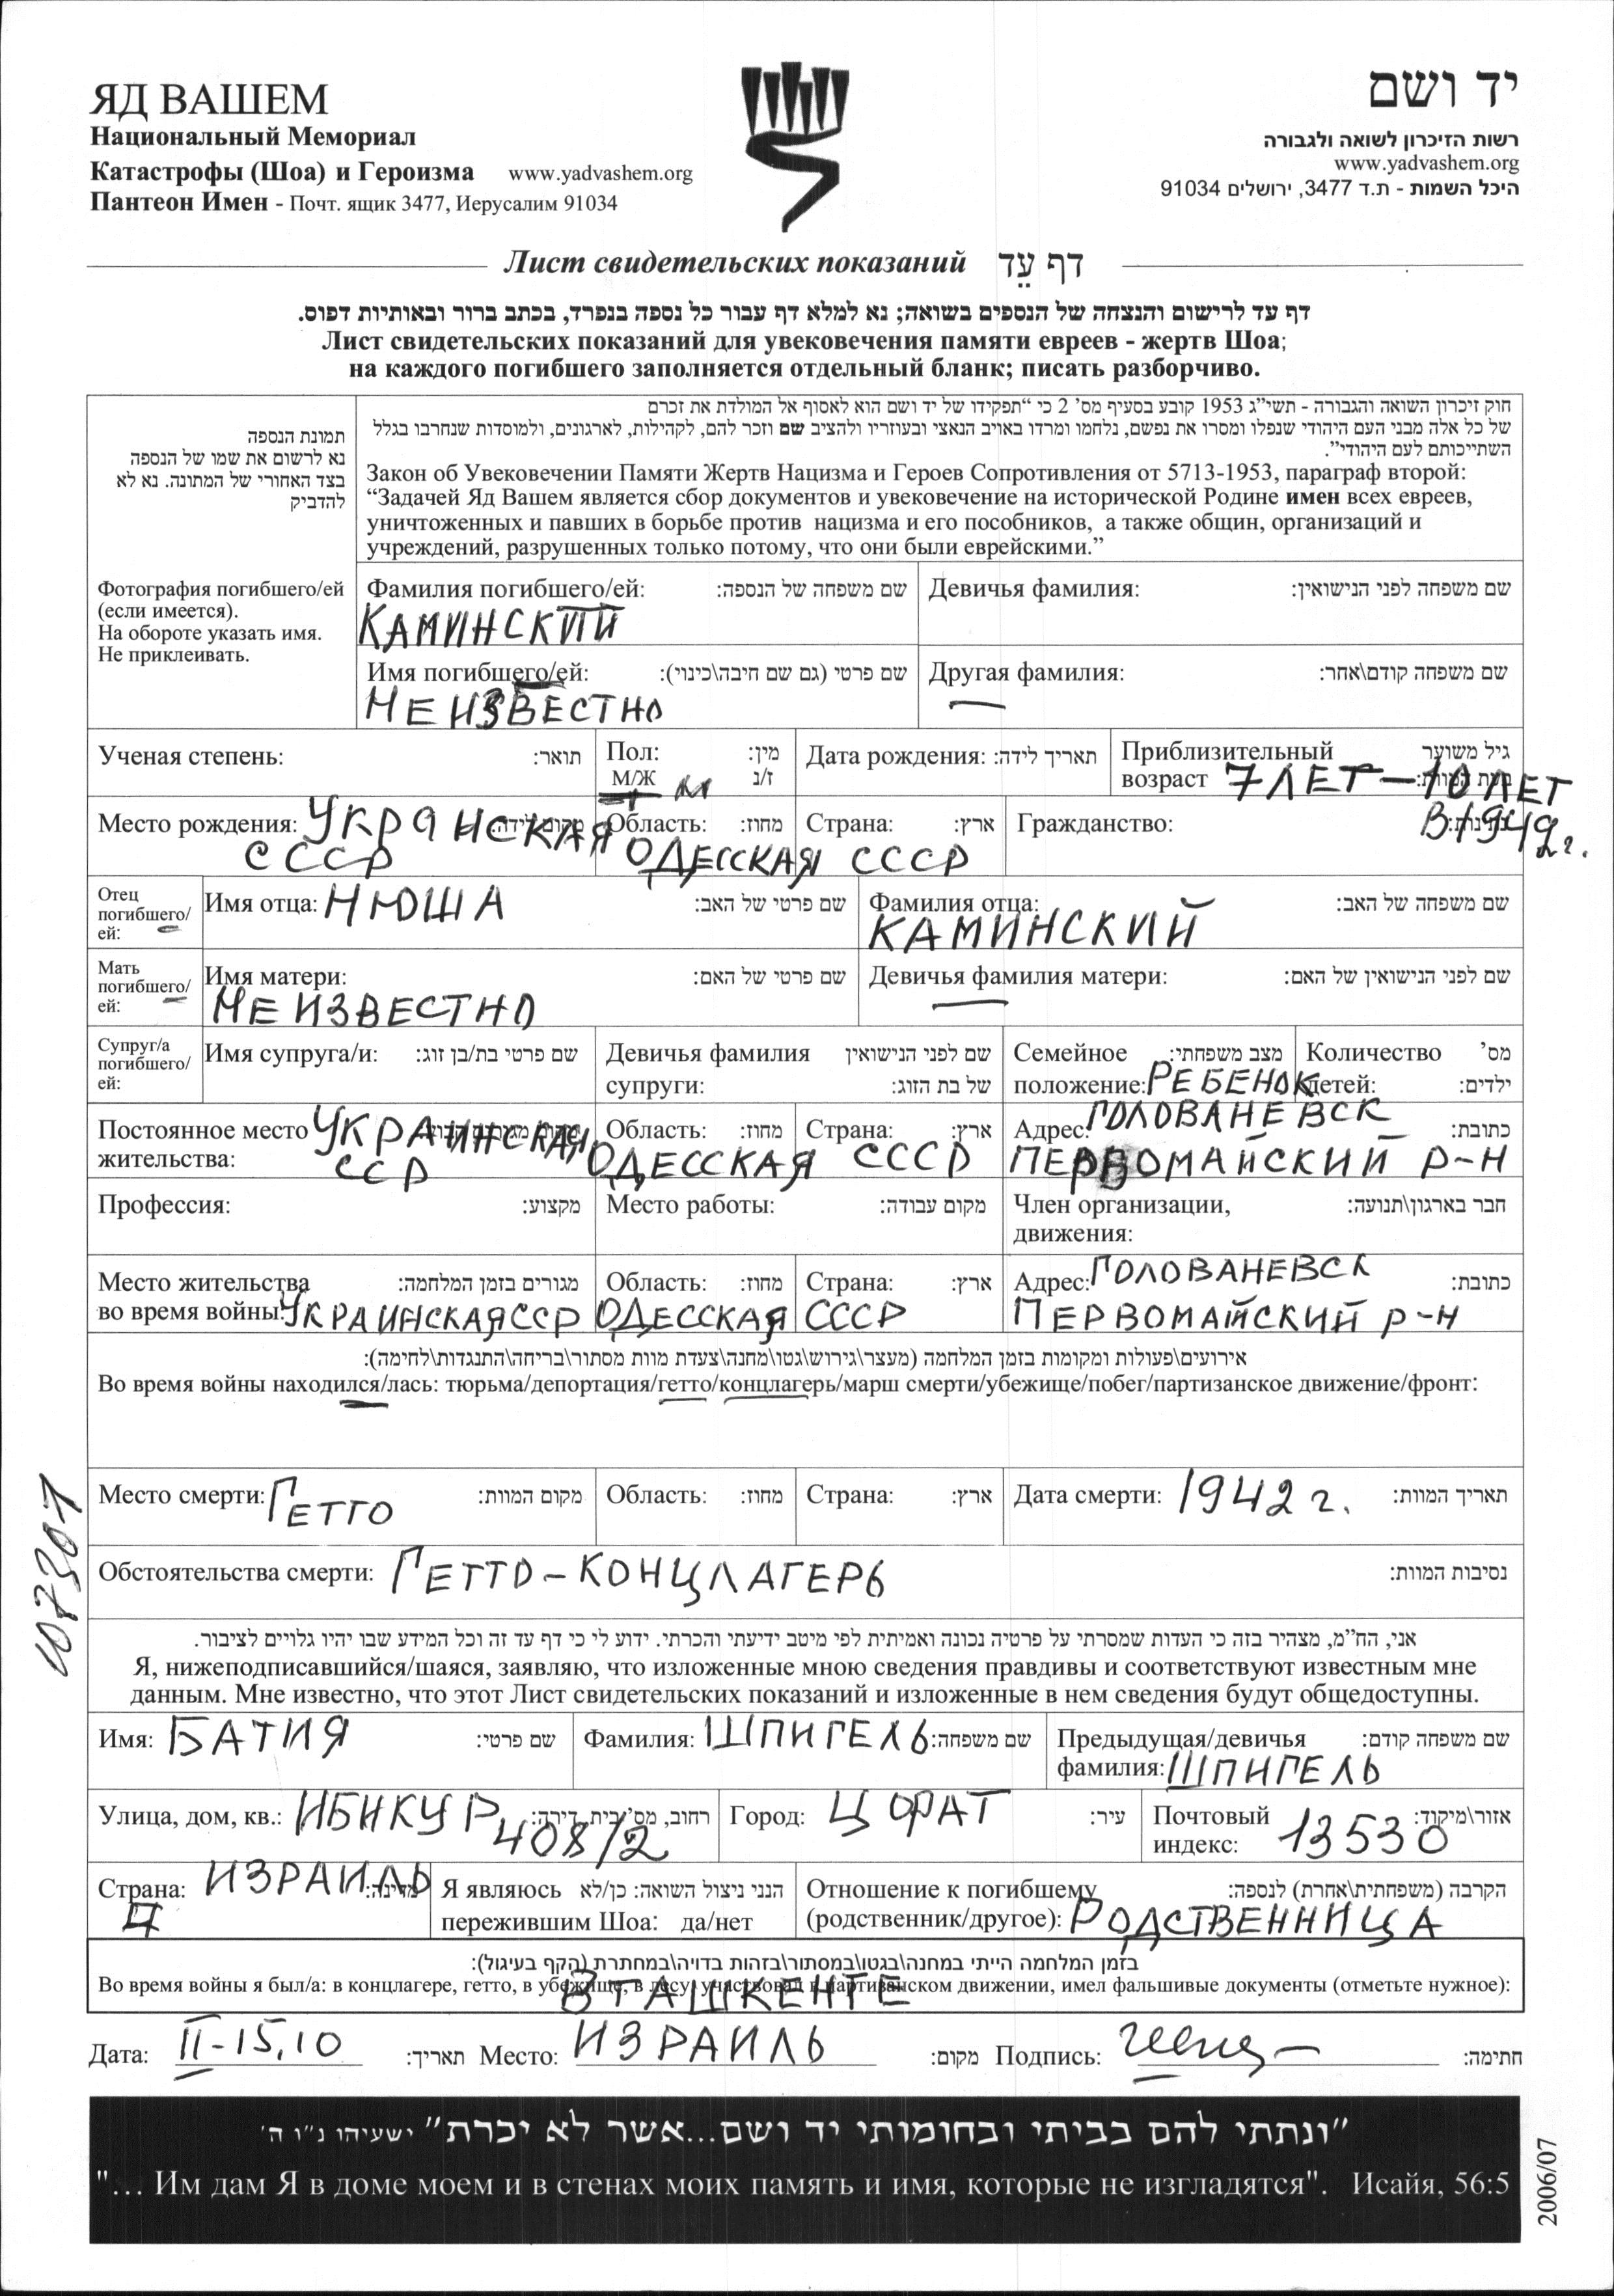 ЯД ВАШЕМ
Национальный Мемориал
Катастрофы (Шоа) и Героизма www.yadvashem.org
Пантеон Имен - Почт. ящик 3477, Иерусалим 91034
יד ושם
רשות הזיכרון לשואה ולגבורה
www.yadvashem.org
היכל השמות - ת.ד 3477, ירושלים 91034
Лист свидетельских показаний דף עֵד
דף עד לרישום והנצחה של הנספים בשואה; נא למלא דף עבור כל נספה בנפרד, בכתב ברור ובאותיות דפוס.
Лист свидетельских показаний для увековечения памяти евреев - жертв Шоа;
на каждого погибшего заполняется отдельный бланк; писать разборчиво.
תמונת הנספה
נא לרשום את שמו של הנספה
בצד האחורי של המתונה. נא לא
להדביק
חוק זיכרון השואה והגבורה - תשי"ג 1953 קובע בסעיף מס' 2 כי "תפקידו של יד ושם הוא לאסוף אל המולדת את זכרם
של כל אלה מבני העם היהודי שנפלו ומסרו את נפשם, נלחמו ומרדו באויב הנאצי ובעוזריו ולהציב שם וזכר להם, לקהילות, לארגונים, ולמוסדות שנחרבו בגלל
השתייכותם לעם היהודי".
Закон об Увековечении Памяти Жертв Нацизма и Героев Сопротивления от 5713-1953, параграф второй:
"Задачей Яд Вашем является сбор документов и увековечение на исторической Родине имен всех евреев,
уничтоженных и павших в борьбе против нацизма и его пособников, а также общин, организаций и
учреждений, разрушенных только потому, что они были еврейскими."
Фотография погибшего/ей
(если имеется).
На обороте указать имя.
Не приклеивать.
Фамилия погибшего/ей: שם משפחה של הנספה:
КАМИНСКИЙ
Девичья фамилия: שם משפחה לפני הנישואין:
Имя погибшего/ей: שם פרטי (גם שם חיבה\כינוי):
НЕИЗВЕСТНО
Другая фамилия: שם משפחה קודם\אחר:
—
Ученая степень: תואר:
Пол: מין:
М/Ж ז/נ
М
Дата рождения: תאריך לידה:
Приблизительный גיל משוער
возраст 7 ЛЕТ — 10 ЛЕТ
В 1942 г.
Место рождения: УКРАНСКАЯ
СССР
Область: מחוז:
ОДЕССКАЯ
Страна: ארץ:
СССР
Гражданство:
Отец
погибшего/
ей:
Имя отца: НЮША שם פרטי של האב:
Фамилия отца: שם משפחה של האב:
КАМИНСКИЙ
Мать
погибшего/
ей:
Имя матери: שם פרטי של האם:
НЕИЗВЕСТНО
Девичья фамилия матери: שם לפני הנישואין של האם:
—
Супруг/а
погибшего/
ей:
Имя супруга/и: שם פרטי בת/בן זוג:
Девичья фамилия שם לפני הנישואין
супруги: של בת הזוג:
Семейное מצב משפחתי:
положение: РЕБЕНОК
Количество מס'
детей: ילדים:
Постоянное место УКРАИНСКАЯ
жительства: ССР
Область: מחוז:
ОДЕССКАЯ
Страна: ארץ:
СССР
Адрес: ГОЛОВАНЕВСК כתובת:
ПЕРВОМАЙСКИЙ Р-Н
Профессия: מקצוע:
Место работы: מקום עבודה:
Член организации, חבר בארגון\תנועה:
движения:
Место жительства מגורים בזמן המלחמה:
во время войны: УКРАИНСКАЯ ССР
Область: מחוז:
ОДЕССКАЯ
Страна: ארץ:
СССР
Адрес: ГОЛОВАНЕВСК כתובת:
ПЕРВОМАЙСКИЙ Р-Н
אירועים\פעולות ומקומות בזמן המלחמה (מעצר\גירוש\גטו\מחנה\צעדת מוות מסתור\בריחה\התנגדות\לחימה):
Во время войны находился/лась: тюрьма/депортация/гетто/концлагерь/марш смерти/убежище/побег/партизанское движение/фронт:
Место смерти: ГЕТТО מקום המוות:
Область: מחוז:
Страна: ארץ:
Дата смерти: 1942 г. תאריך המוות:
Обстоятельства смерти: ГЕТТО-КОНЦЛАГЕРЬ נסיבות המוות:
אני, הח"מ, מצהיר בזה כי העדות שמסרתי על פרטיה נכונה ואמיתית לפי מיטב ידיעתי והכרתי. ידוע לי כי דף עד זה וכל המידע שבו יהיו גלויים לציבור.
Я, нижеподписавшийся/шаяся, заявляю, что изложенные мною сведения правдивы и соответствуют известным мне
данным. Мне известно, что этот Лист свидетельских показаний и изложенные в нем сведения будут общедоступны.
Имя: БАТИЯ שם פרטי:
Фамилия: ШПИГЕЛЬ שם משפחה:
Предыдущая/девичья שם משפחה קודם:
фамилия: ШПИГЕЛЬ
Улица, дом, кв.: ИБНКУР רחוב, מס' בית, דירה:
408/2
Город: ЦФРАТ עיר:
Почтовый אזור\מיקוד:
индекс: 13530
Страна: ИЗРАИЛЬ
Я являюсь הנני ניצול השואה: כן/לא
пережившим Шоа: да/нет
Отношение к погибшему הקרבה (משפחתית\אחרת) לנספה:
(родственник/другое): РОДСТВЕННИЦА
בזמן המלחמה הייתי במחנה\בגטו\במסתור\בזהות בדויה\במחתרת (הקף בעיגול):
Во время войны я был/а: в концлагере, гетто, в убежище, в лесу, участвовал в партизанском движении, имел фальшивые документы (отметьте нужное):
В ТАШКЕНТЕ
Дата: II-15.10 תאריך: Место: ИЗРАИЛЬ מקום: Подпись: חתימה:
"ונתתי להם בביתי ובחומותי יד ושם...אשר לא יכרת" ישעיהו נ"ו ה'
"... Им дам Я в доме моем и в стенах моих память и имя, которые не изгладятся". Исайя, 56:5
2006/07